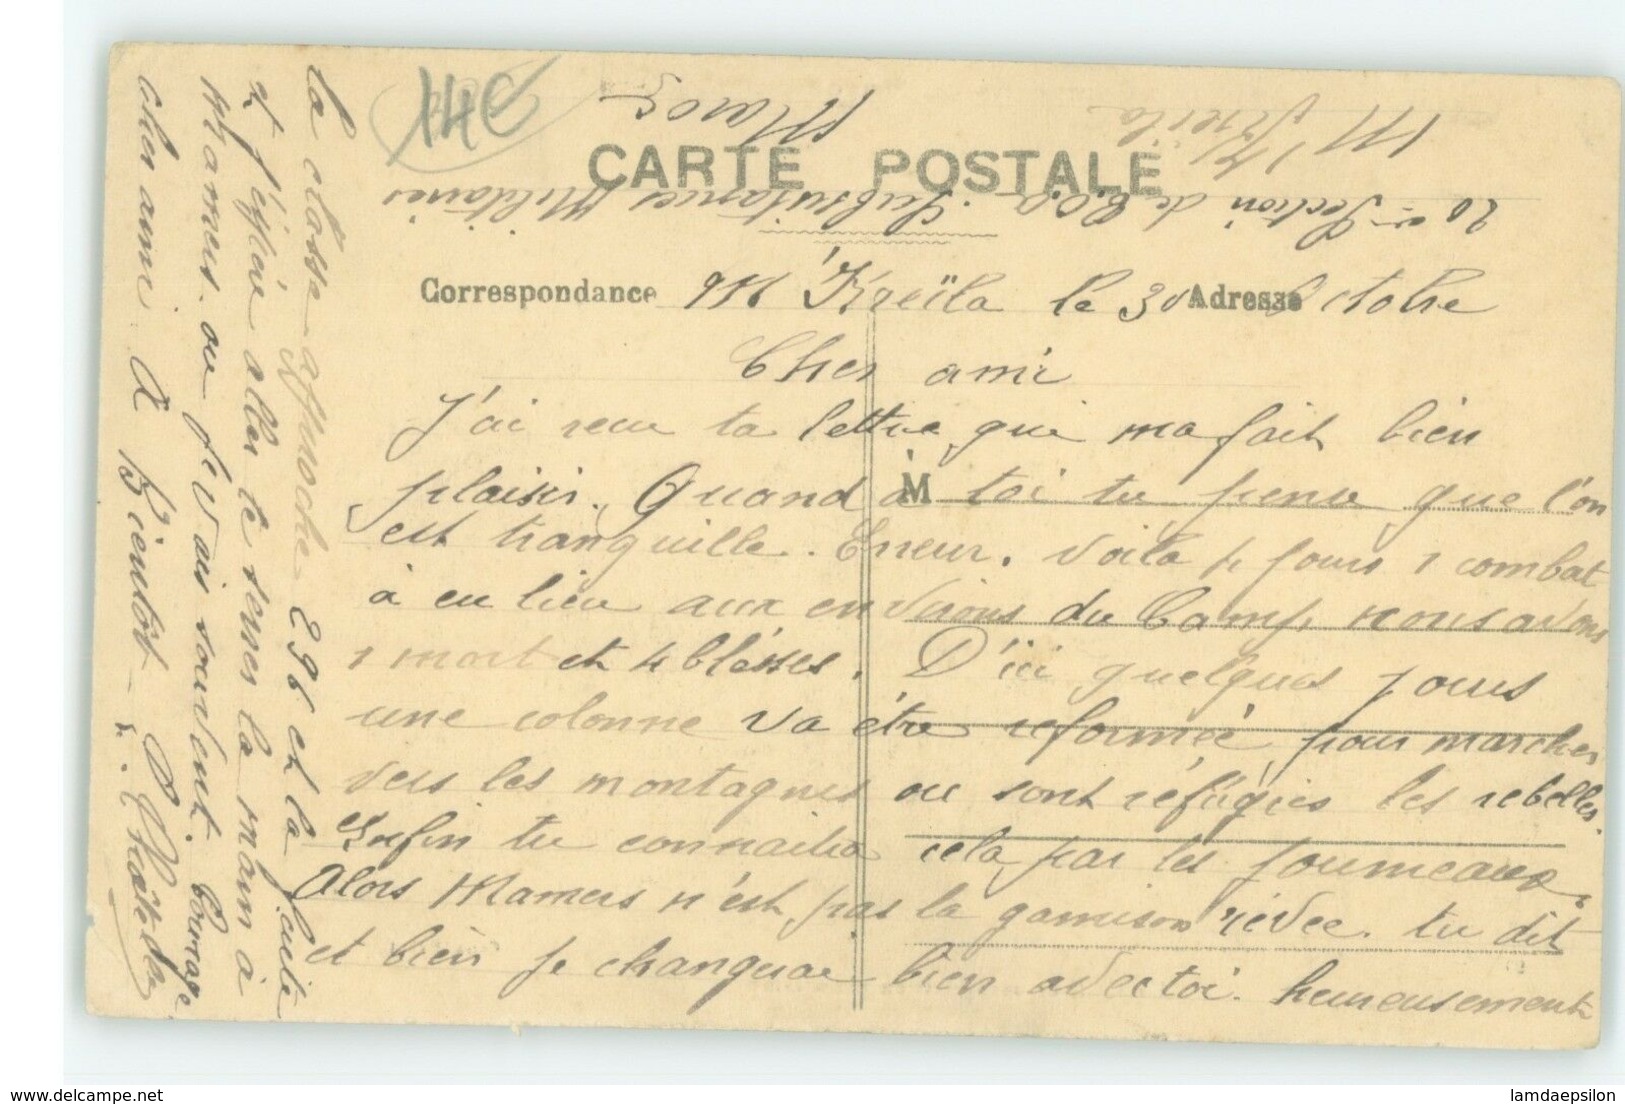 14€
CARTE POSTALE
20e Section de C.O.A Subsistances Militaires
M'Kreïla
Maroc
Correspondance
Adresse
M
M'Kreïla le 30 Octobre
Cher ami
J'ai recu ta lettre qui ma fait bien
plaisir. Quand à toi tu pense que l'on
est tranquille. Erreur. Voila 4 jours 1 combat
à eu lieu aux environs du Camp, nous avons
1 mort et 4 bléssés. D'ici quelques jours
une colonne va être reformée, pour marcher
vers les montagnes ou sont réfugiés les rebelles.
Enfin tu connaitra cela par les journeaux.
Alors Mamers n'est pas la garnison révée. tu dit
et bien je changerai bien avec toi. heureusement
la classe approche 296 et la fuite
et j'éspère aller te serrer la main à
Mamers. ou je vais souvent. Courage
cher ami A Bientot